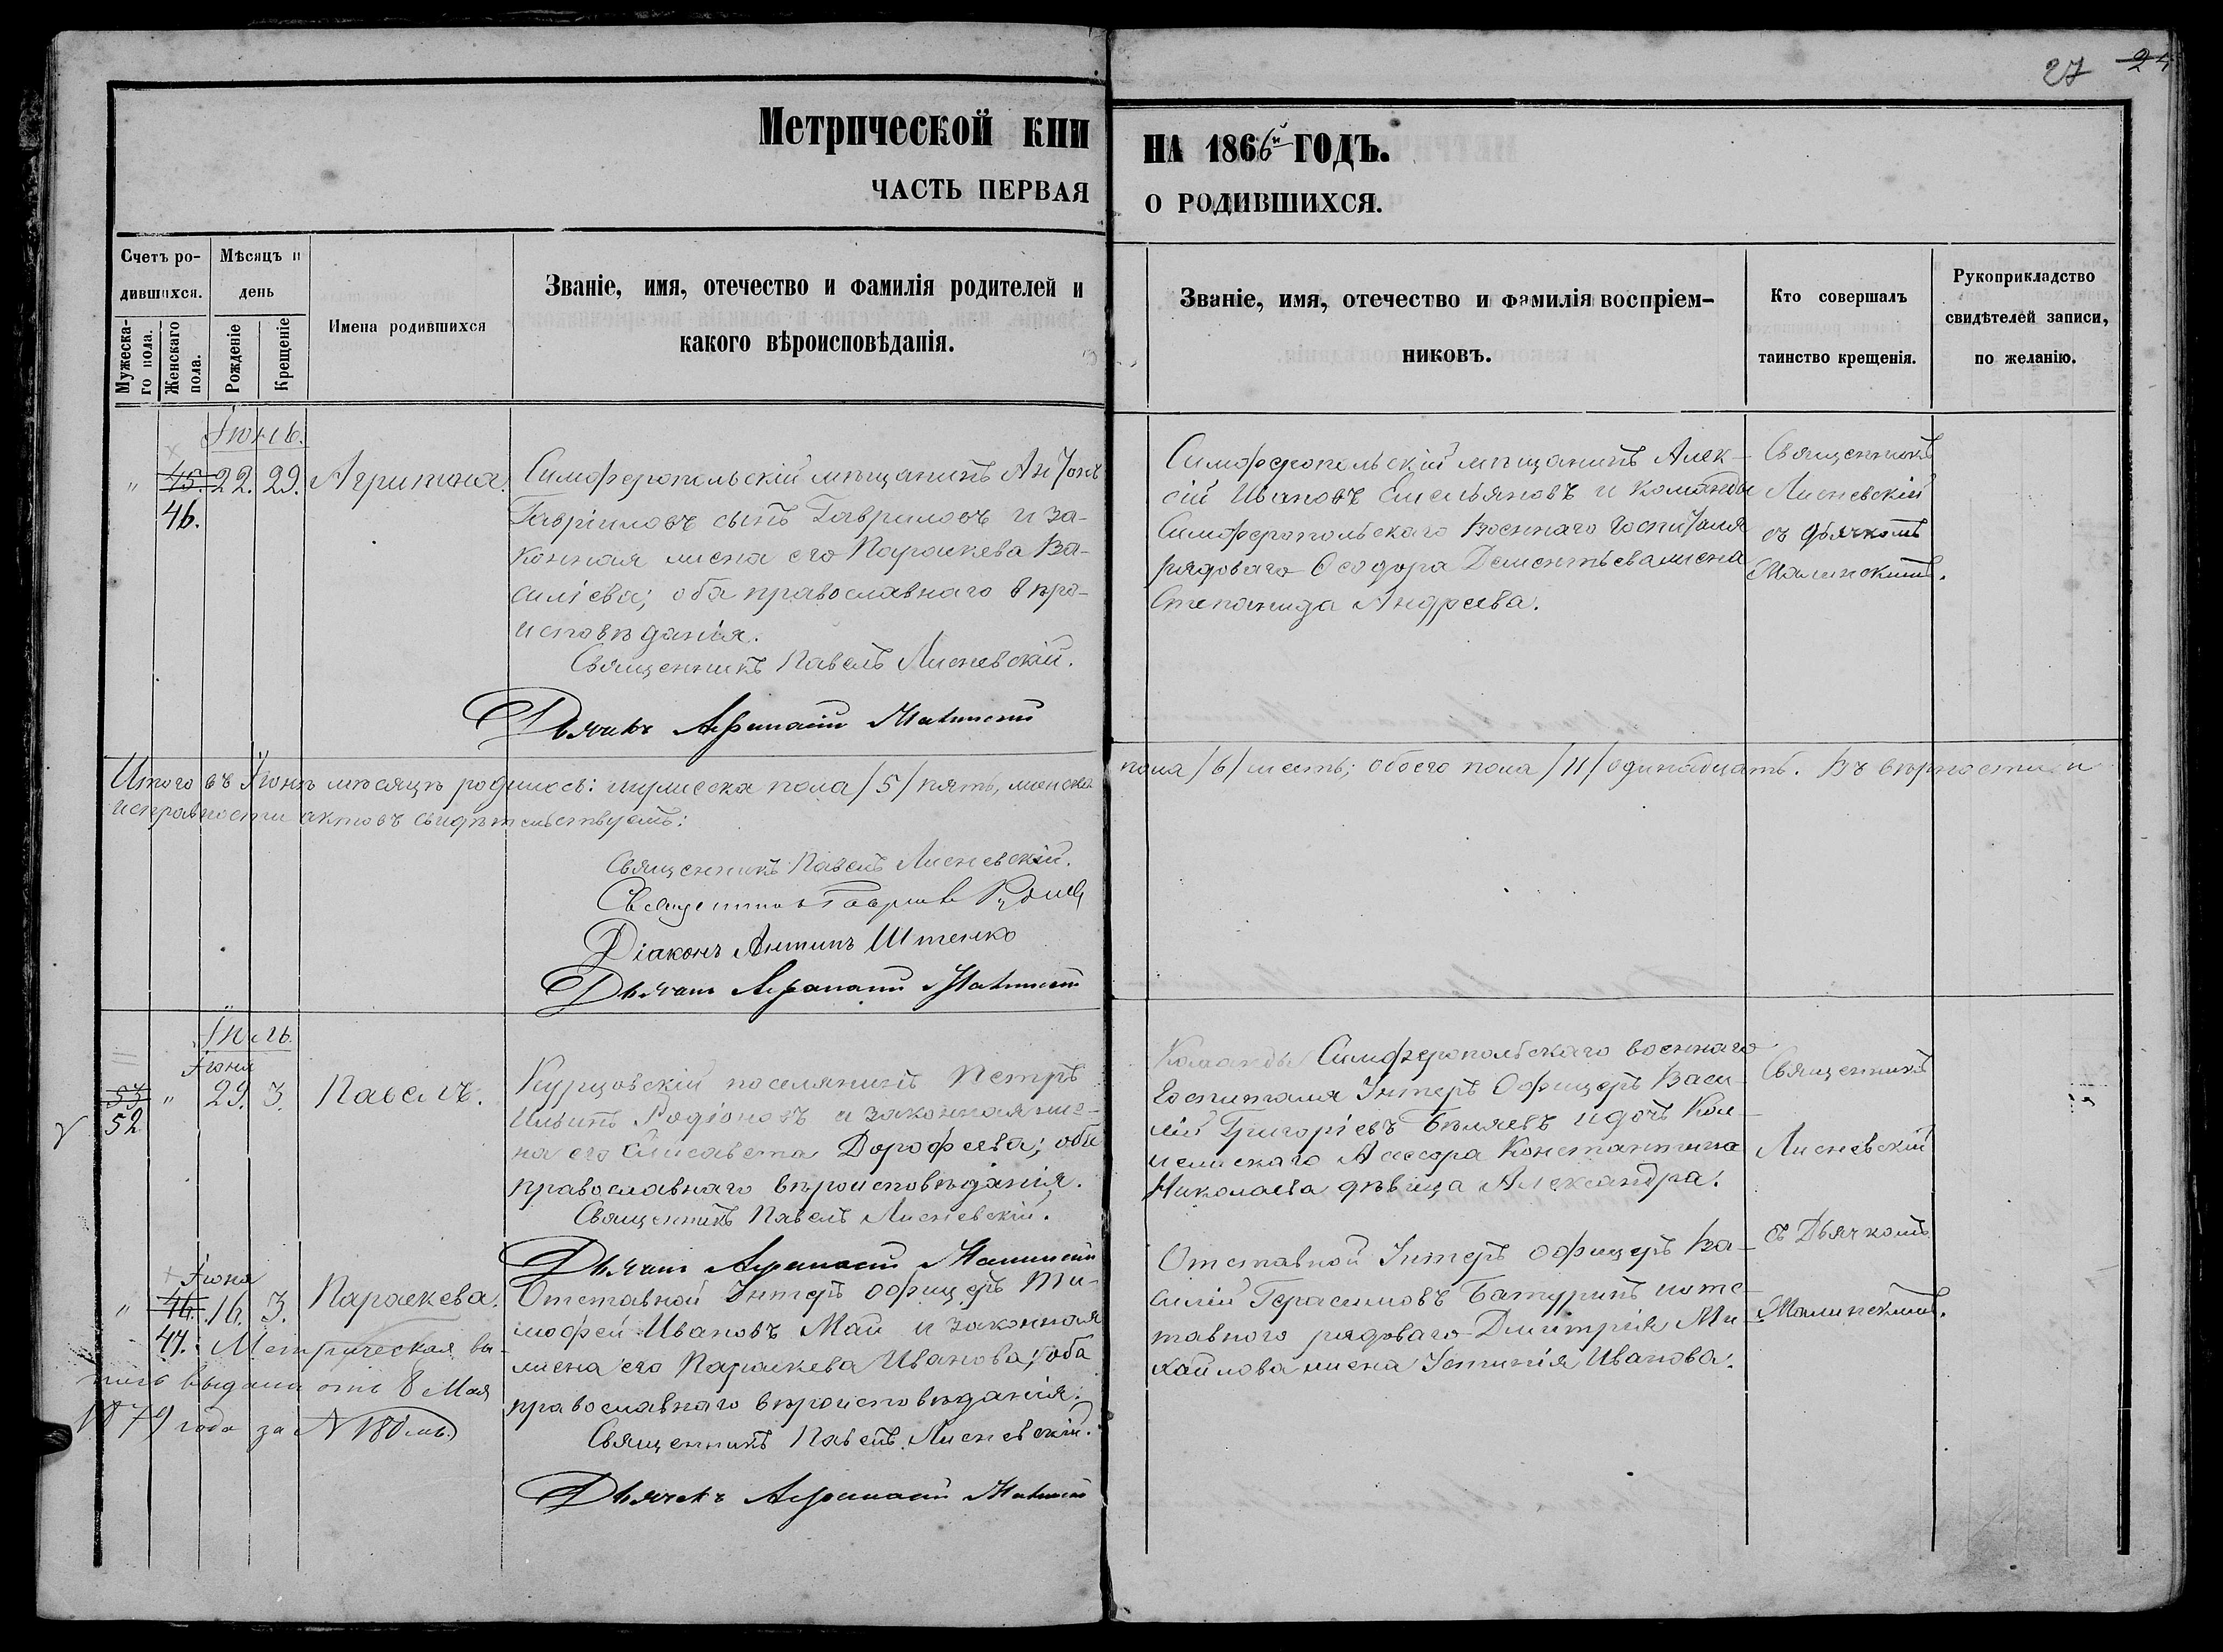 27 24
Метрической кни
НА 1866й ГОДЪ.
ЧАСТЬ ПЕРВАЯ
О РОДИВШИХСЯ.
Счетъ ро-
дившихся.
Мужеска-
го пола.
Женскаго
пола.
Мѣсяцъ и
день
Рожденіе
Крещеніе
Имена родившихся
Званіе, имя, отечество и фамилія родителей и
какого вѣроисповѣданія.
Званіе, имя, отечество и фамилія воспріем-
никовъ.
Кто совершалъ
таинство крещенія.
Рукоприкладство
свидѣтелей записи,
по желанію.
Іюнь.
" 45. 22. 29. Агрипина.
46.
Симферопольскій мѣщанинъ Антонъ
Гавріиловъ сынъ Гавриловъ и за-
конная жена его Параскева Ва-
силіева; оба православнаго вѣро-
исповѣданія.
Священникъ Павелъ Лисневскій.
Дьячекъ Афанасій Малинскій
Симферопольскій мѣщанинъ Алек-
сій Ивановъ Емельяновъ и команды
Симферопольскаго Военнаго Госпиталя
рядоваго Ѳеодора Дементьева жена
Степанида Андреева.
Священникъ
Лисневскій
съ дьячкомъ
Малинскимъ.
Итого въ Іюнѣ мѣсяцѣ родилось: мужеска пола /5/ пять, женска
пола /6/ шесть; обоего пола /11/ одинадцать. Въ вѣрности и
исправности актовъ свидѣтельствуемъ:
Священникъ Павелъ Лисневскій.
Священникъ Гавріилъ
Діаконъ Антипъ Штенко
Дьячекъ Афанасій Малинскій
Іюль.
Іюня
53 " 29. 3. Павелъ.
52
Курцовскій поселянинъ Петръ
Ильинъ Родіоновъ и законная же-
на его Елисавета Дорофеева; оба
православнаго вѣроисповѣданія.
Священникъ Павелъ Лисневскій.
Дьячекъ Афанасій Малинскій
Команды Симферопольскаго военнаго
Госпиталя Унтеръ Офицеръ Васи-
лій Григоріевъ Бѣляевъ и дочь Кол-
лежскаго Асессора Константина
Николаева дѣвица Александра.
Священникъ
Лисневскій
съ Дьячкомъ
Малинскимъ.
Іюня
" 46. 16. 3. Параскева.
47. Метрическая вы-
пись выдана отъ 8 Мая
1879 года за N 180мъ.
Отставной Унтеръ офицеръ Ти-
мофей Ивановъ Май и законная
жена его Параскева Иванова; оба
православнаго вѣроисповѣданія.
Священникъ Павелъ Лисневскій.
Дьячекъ Афанасій Малинскій
Отставной Унтеръ офицеръ Ва-
силій Герасимовъ Батуринъ и отс-
тавного рядоваго Димитрія Ми-
хайлова жена Устинія Иванова.